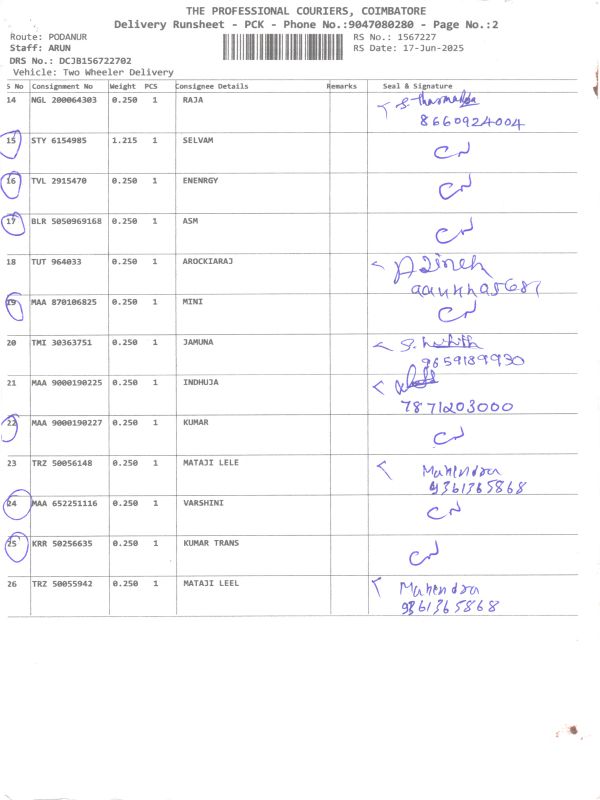 THE PROFESSIONAL COURIERS, COIMBATORE
Delivery Runsheet - PCK - Phone No.:9047080280 - Page No.:2
Route: PODANUR RS No.: 1567227
Staff: ARUN RS Date: 17-Jun-2025
DRS No.: DCJB156722702
Vehicle: Two Wheeler Delivery
S No Consignment No Weight PCS Consignee Details Remarks Seal & Signature
14 NGL 200064303 0.250 1 RAJA
8660924004
15 STY 6154985 1.215 1 SELVAM CN
16 TVL 2915470 0.250 1 ENENRGY CN
17 BLR 5050969168 0.250 1 ASM CN
18 TUT 964033 0.250 1 AROCKIARAJ
19 MAA 870106825 0.250 1 MINI CN
20 TMI 30363751 0.250 1 JAMUNA
9659189930
21 MAA 9000190225 0.250 1 INDHUJA
7871203000
22 MAA 9000190227 0.250 1 KUMAR CN
23 TRZ 50056148 0.250 1 MATAJI LELE Mahendra
9361365868
24 MAA 652251116 0.250 1 VARSHINI CN
25 KRR 50256635 0.250 1 KUMAR TRANS CN
26 TRZ 50055942 0.250 1 MATAJI LEEL Mahendra
9361365868